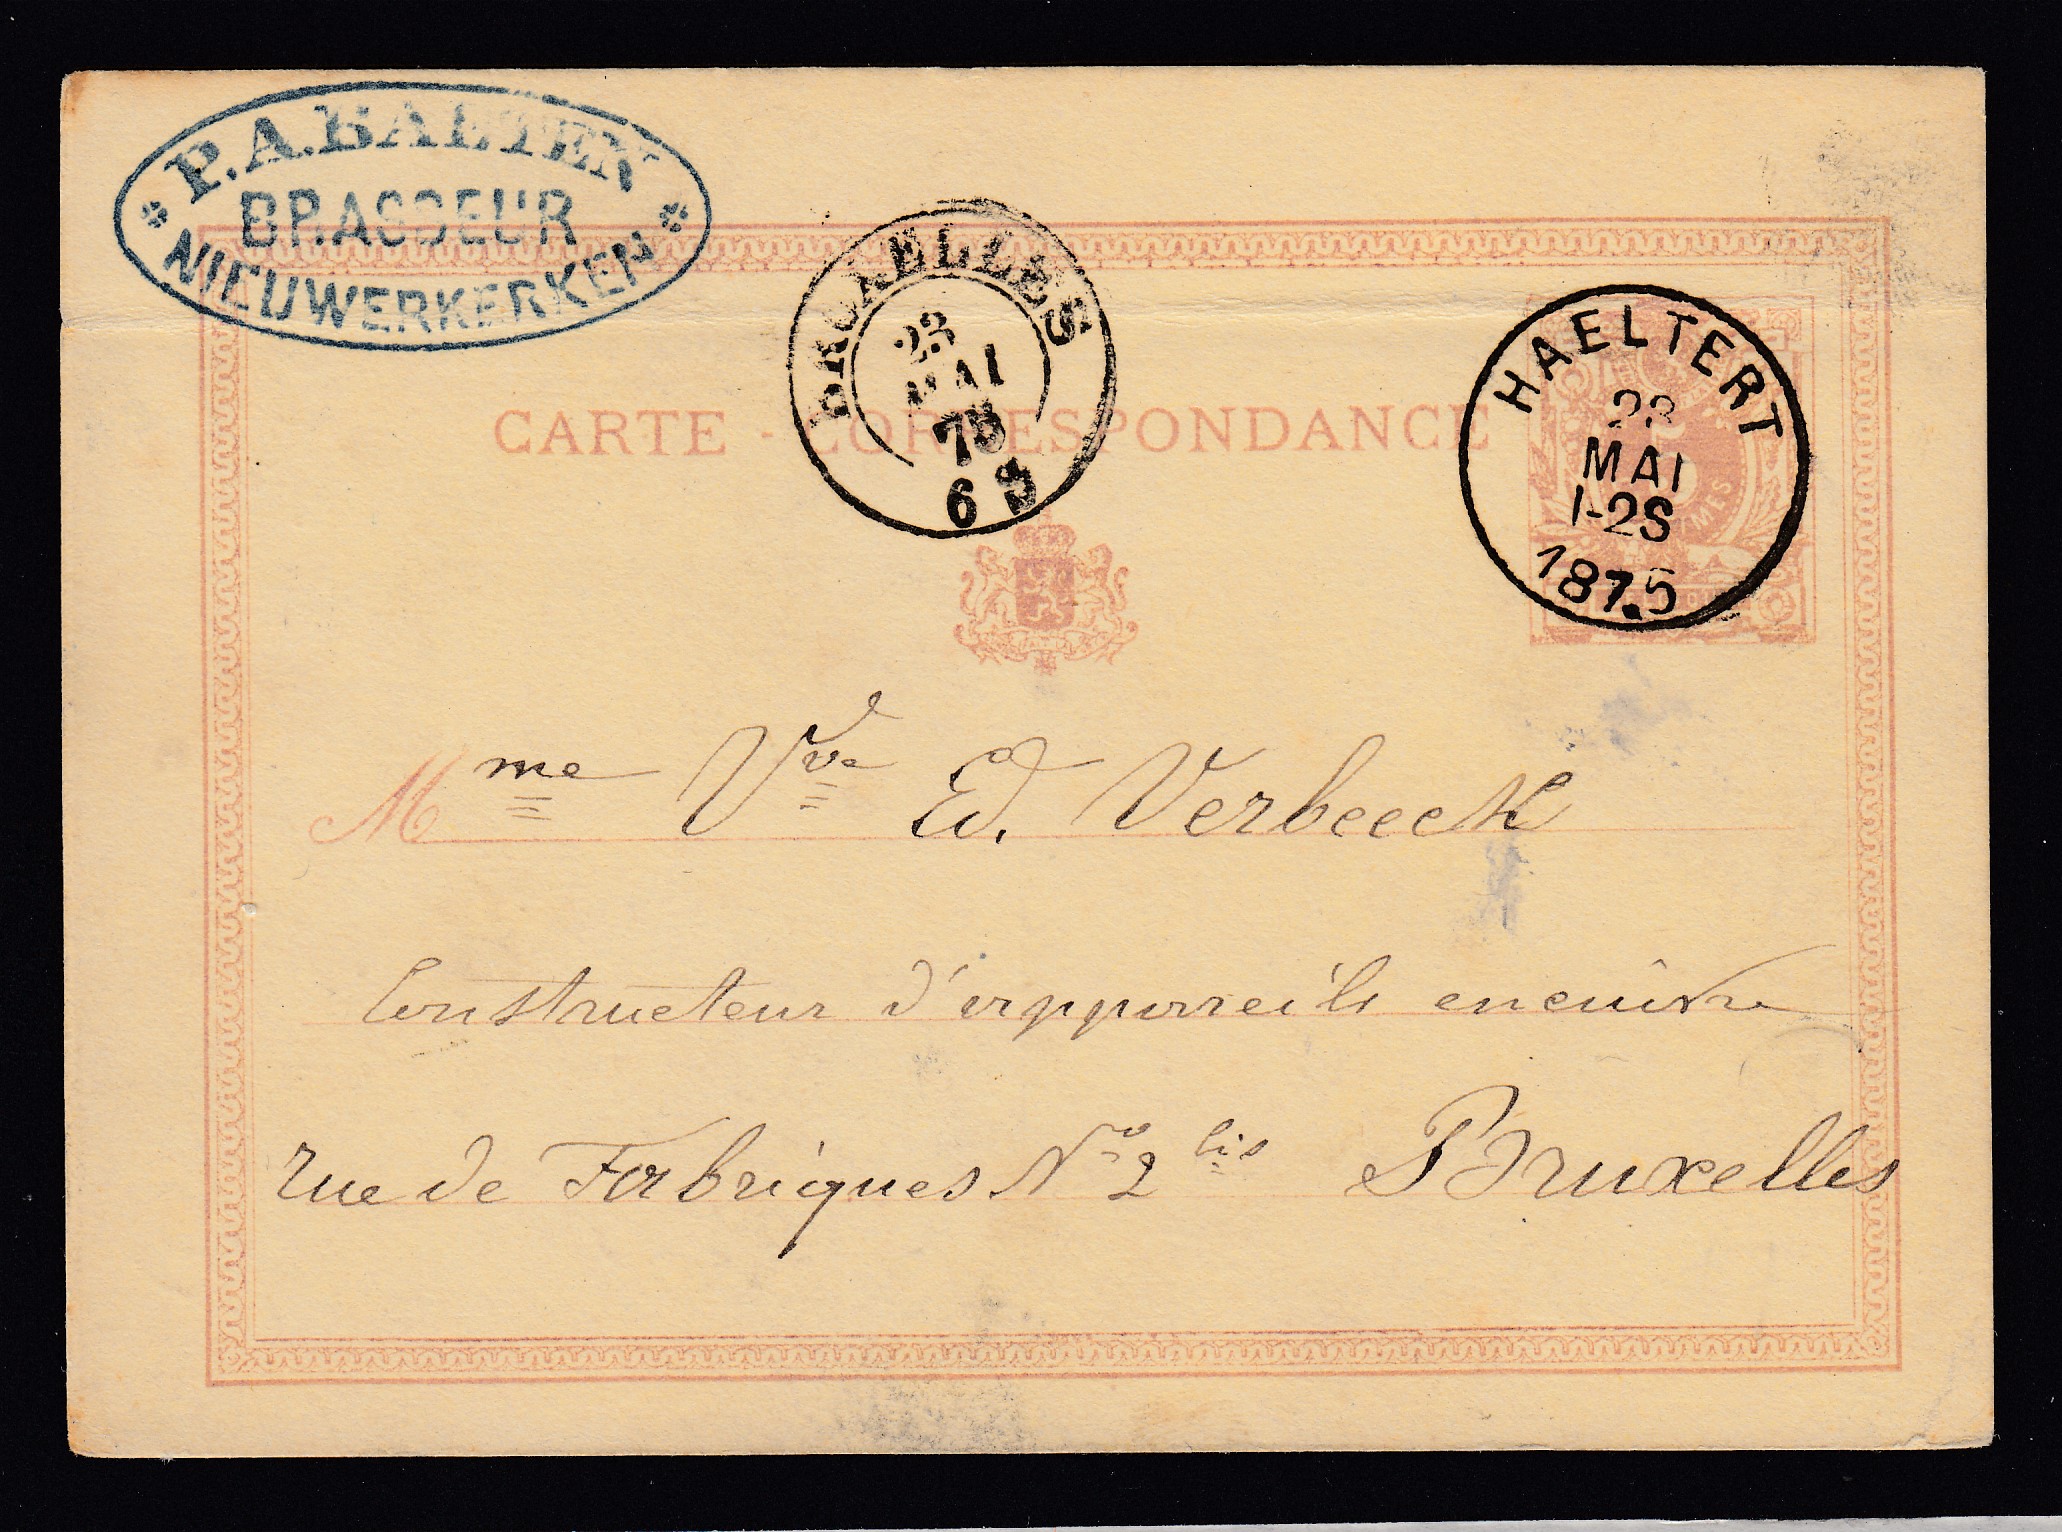 P.A. BAETEN
BRASSEUR
NIEUWERKERKEN
BRUXELLES
23
MAI
75
6 S
HAELTERT
23
MAI
1-2S
1875
CARTE - CORRESPONDANCE
5
Mme Vve Ed. Verbeeck
Constructeur d'appareils en cuivre
rue de Fabriques No 2 bis Bruxelles